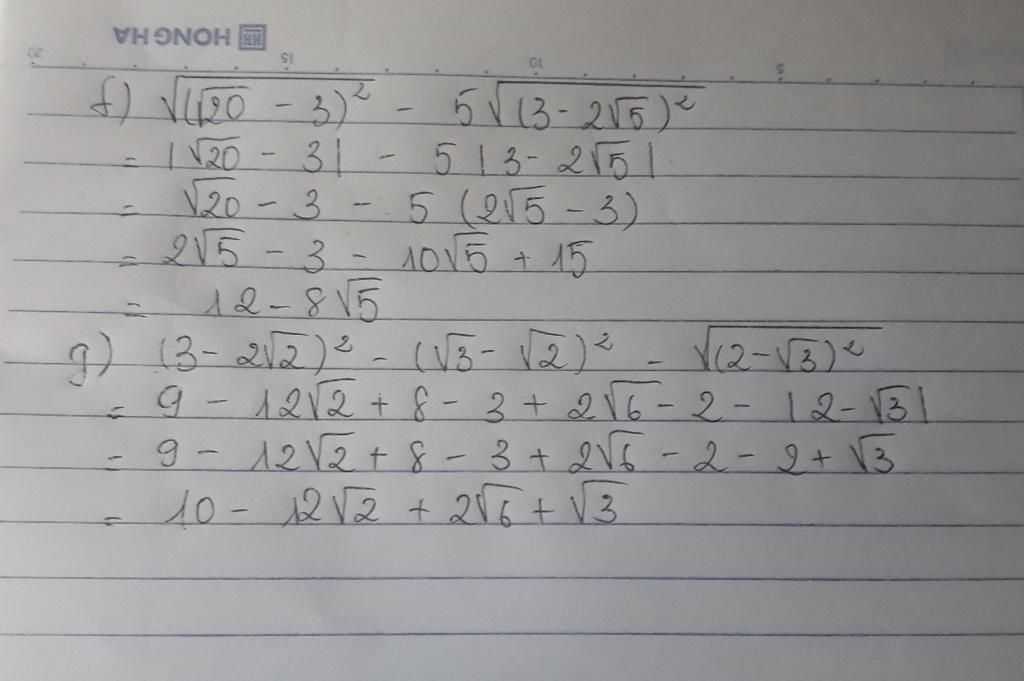 HONG HA
20 15 10 5
f) √(√20 - 3)² - 5√(3 - 2√5)²
= |√20 - 3| - 5 |3 - 2√5|
= √20 - 3 - 5 (2√5 - 3)
= 2√5 - 3 - 10√5 + 15
= 12 - 8√5
g) (3 - 2√2)² - (√3 - √2)² - √(2 - √3)²
= 9 - 12√2 + 8 - 3 + 2√6 - 2 - |2 - √3|
= 9 - 12√2 + 8 - 3 + 2√6 - 2 - 2 + √3
= 10 - 12√2 + 2√6 + √3